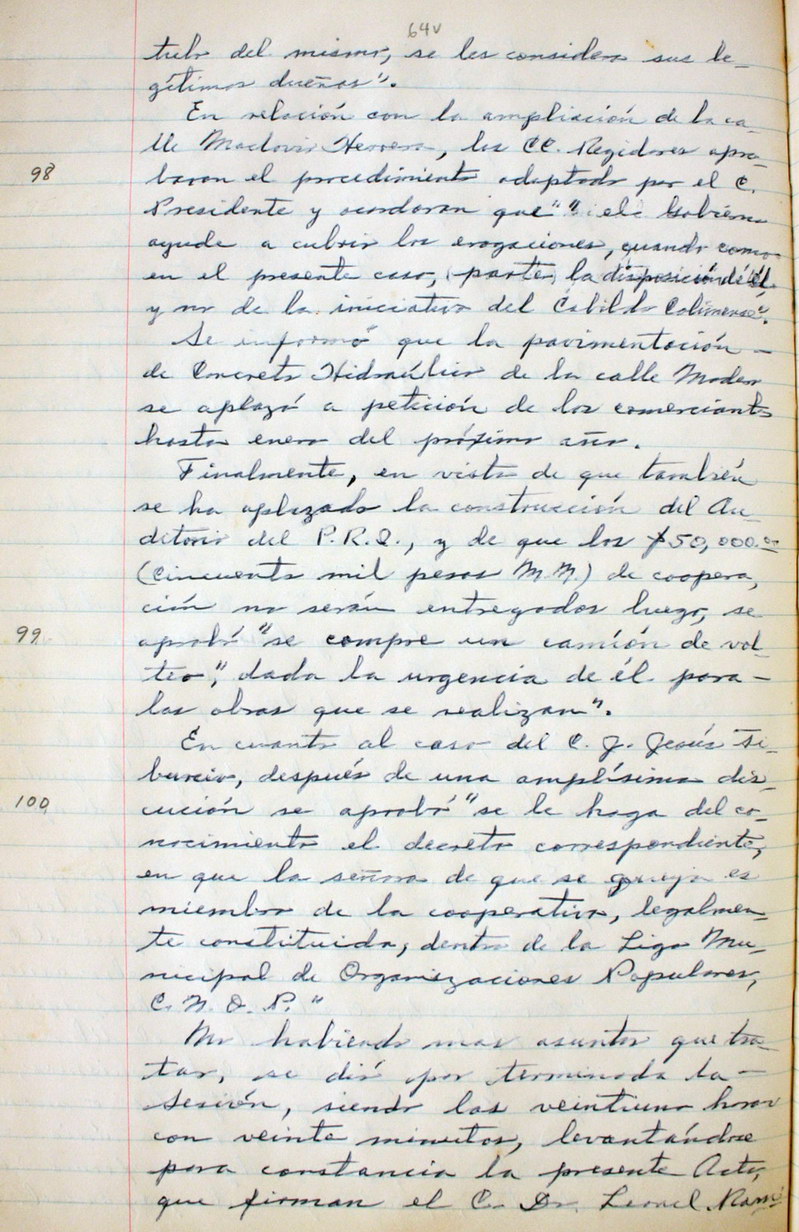 64v
tulo del mismo, se les considera sus le-
gítimos dueños".
En relación con la ampliación de la ca-
lle Maclovio Herrera, los CC. Regidores apro-
98
baron el procedimiento adoptado por el C.
Presidente y acordaron que " " el Gobierno
ayude a cubrir las erogaciones, cuando como
en el presente caso, (parte) la disposición de él
y no de la iniciativa del Cabildo Colimense".
Se informó que la pavimentación -
de Concreto Hidraúlico de la calle Madero
se aplazó a petición de los comerciantes
hasta enero del próximo año.
Finalmente, en vista de que también
se ha aplazado la construcción del Au-
ditorio del P.R.I., y de que los $50,000.00
(cincuenta mil pesos M.N.) de coopera,
ción no serán entregados luego, se
99
aprobó "se compre un camión de vol-
teo", dada la urgencia de él para -
las obras que se realizan".
En cuanto al caso del C. J. Jesús Ti-
burcio, después de una amplísima dis-
100
cución se aprobó "se le haga del co-
nocimiento el decreto correspondiente,
en que la señora de que se queja es
miembro de la cooperativa, legalmen-
te constituida, dentro de la Liga Mu-
nicipal de Organizaciones Populares,
C.N.O.P."
No habiendo mas asuntos que tra-
tar, se dió por terminada la -
Sesión, siendo las veintiuna horas
con veinte minutos, levantándose
para constancia la presente Acta,
que firman el C. Dr. Leonel Ramí